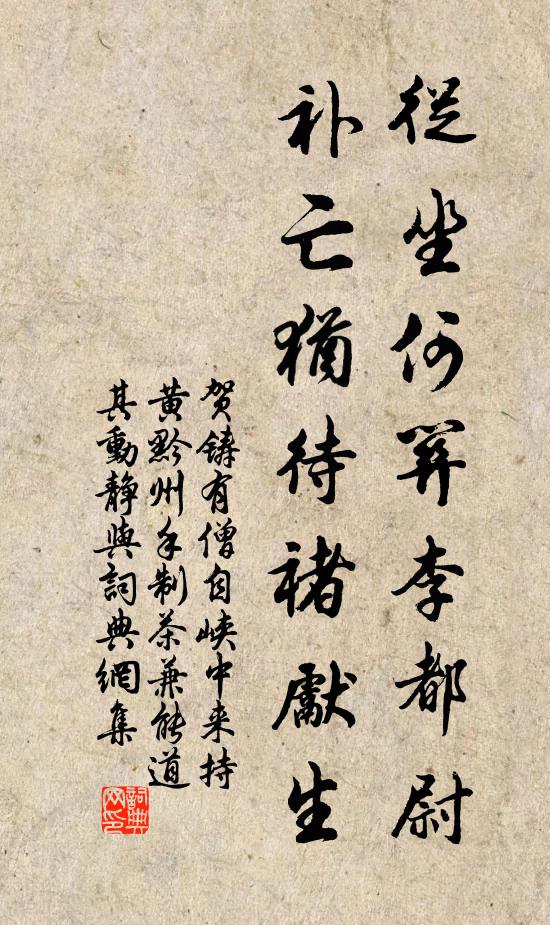 從坐何關李都尉
补亡猶待褚獻生
贺鑄有僧自峡中来持
黄黔州手制茶兼能道
其動静與詞典網集
詞典网印